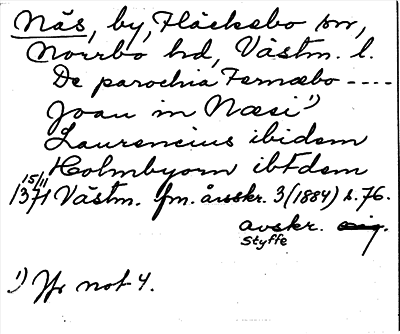 Näs, by, Fläckebo sn,
Norrbo hd, Västm. l.
De parochia Fernæbo ----
Joan in Næsi 1)
Laurencius ibidem
Holmbyorn ibidem
15/11 1371 Västm. fm. årsskr. 3 (1884) s. 76.
avskr. orig.
Styffe
1) Jfr not 4.